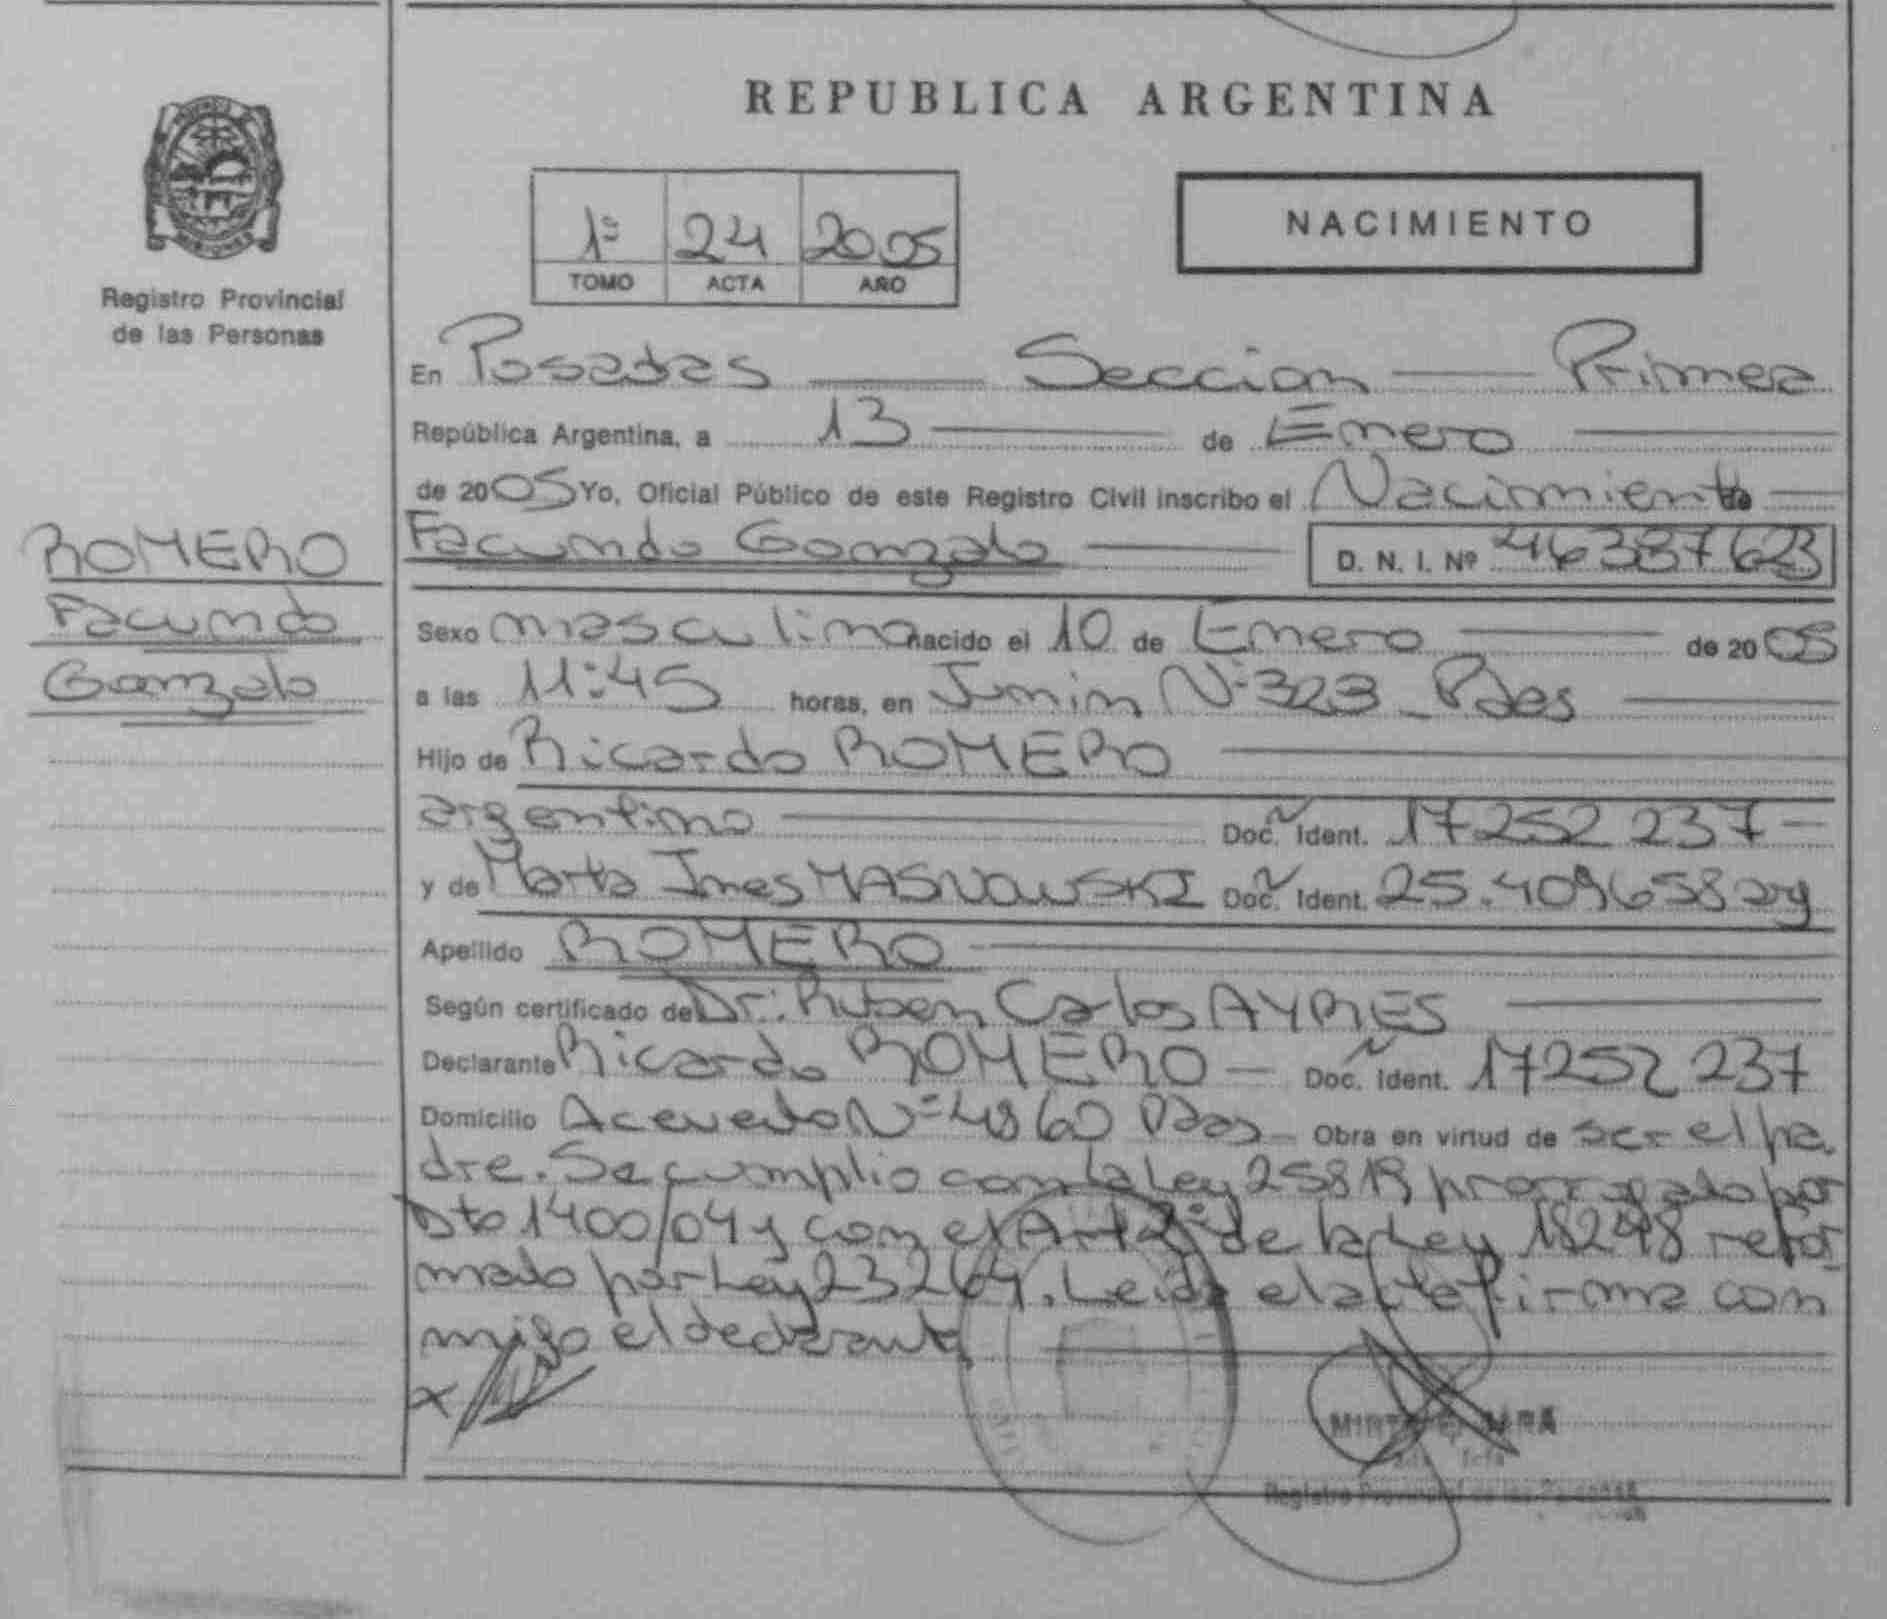 REPUBLICA ARGENTINA
Registro Provincial
de las Personas
1º 24 2005
TOMO ACTA AÑO
NACIMIENTO
En Posadas Seccion Primera
República Argentina, a 13 de Enero
de 2005 Yo, Oficial Público de este Registro Civil inscribo el Nacimiento de
ROMERO
Facundo
Gonzalo
Facundo Gonzalo D. N. I. Nº 46387623
Sexo masculino nacido el 10 de Enero de 2005
a las 11:45 horas, en Junin Nº 323 Pdas
Hijo de Ricardo ROMERO
argentino Doc. Ident. 17252237
y de Marta Ines MASNOWSKI Doc. Ident. 25.409658 arg
Apellido ROMERO
Según certificado de Dr: Ruben Carlos AYRES
Declarante Ricardo ROMERO Doc. Ident. 17252237
Domicilio Acevedo Nº 4860 Pdas Obra en virtud de ser el pa
dre. Se cumplio con la Ley 25819 prorrogado por
Dto 1400/04 y con el Art 2º de la Ley 18248 refor
mado por Ley 23264. Leida el acta firma con
migo el declarante,
x
Registro Provincial de las Personas